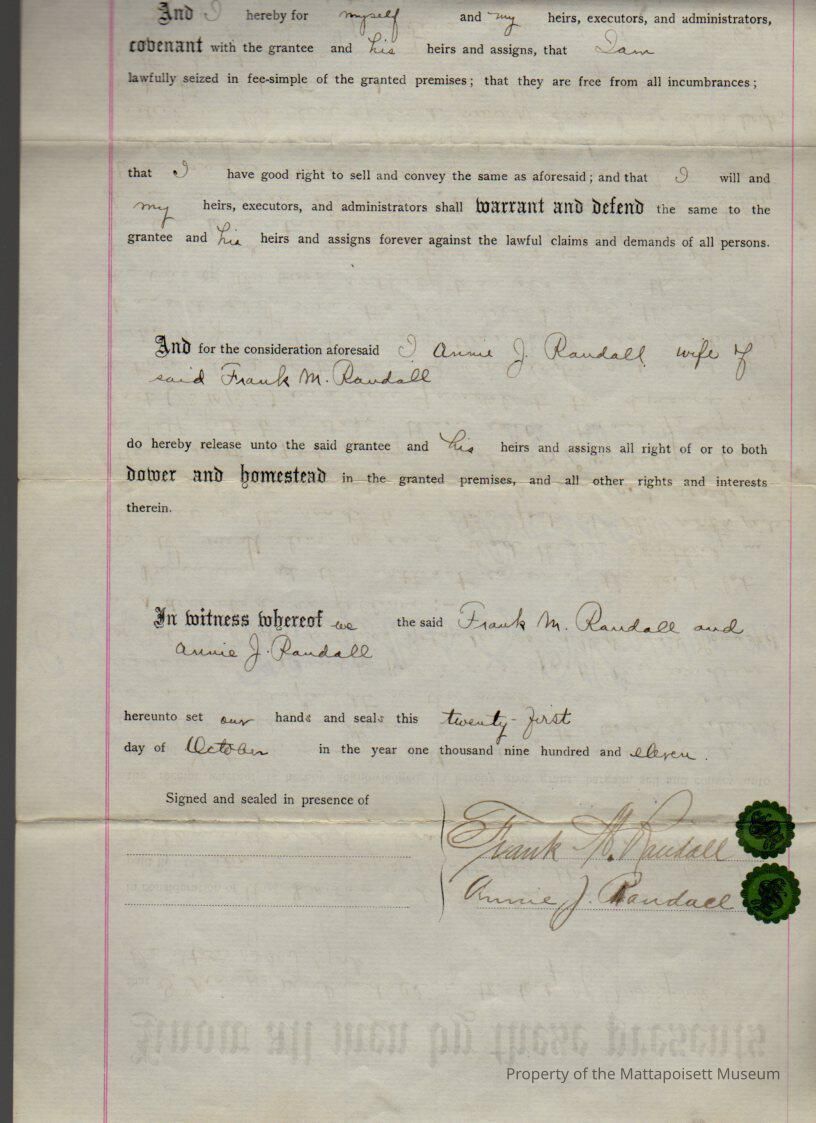 And I hereby for myself and my heirs, executors, and administrators,
covenant with the grantee and his heirs and assigns, that I am
lawfully seized in fee-simple of the granted premises; that they are free from all incumbrances;
that I have good right to sell and convey the same as aforesaid; and that I will and
my heirs, executors, and administrators shall warrant and defend the same to the
grantee and his heirs and assigns forever against the lawful claims and demands of all persons.
And for the consideration aforesaid I Annie J. Randall wife of
said Frank M. Randall
do hereby release unto the said grantee and his heirs and assigns all right of or to both
dower and homestead in the granted premises, and all other rights and interests
therein.
In witness whereof we the said Frank M. Randall and
Annie J. Randall
hereunto set our hands and seals this twenty-first
day of October in the year one thousand nine hundred and eleven.
Signed and sealed in presence of
Frank M. Randall
Annie J. Randall
Know all men by these presents
Property of the Mattapoisett Museum